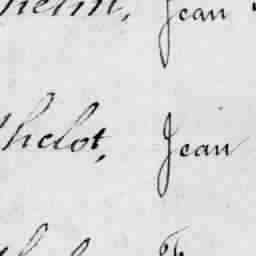 helin, Jean
helot, Jean